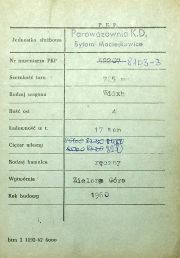 P.K.P
Jednostka służbowa Parowozownia K.D.
Bytom Maciejkowice
Nr inwentarza PKP 8103-3
Szerokość toru 785 m
Rodzaj wagonu Wddxh
Ilość osi 4
Ładowność w t. 17 ton
Ciężar własny
Rodzaj hamulca ręczny
Wytwórnia Zielona Góra
Rok budowy 1960